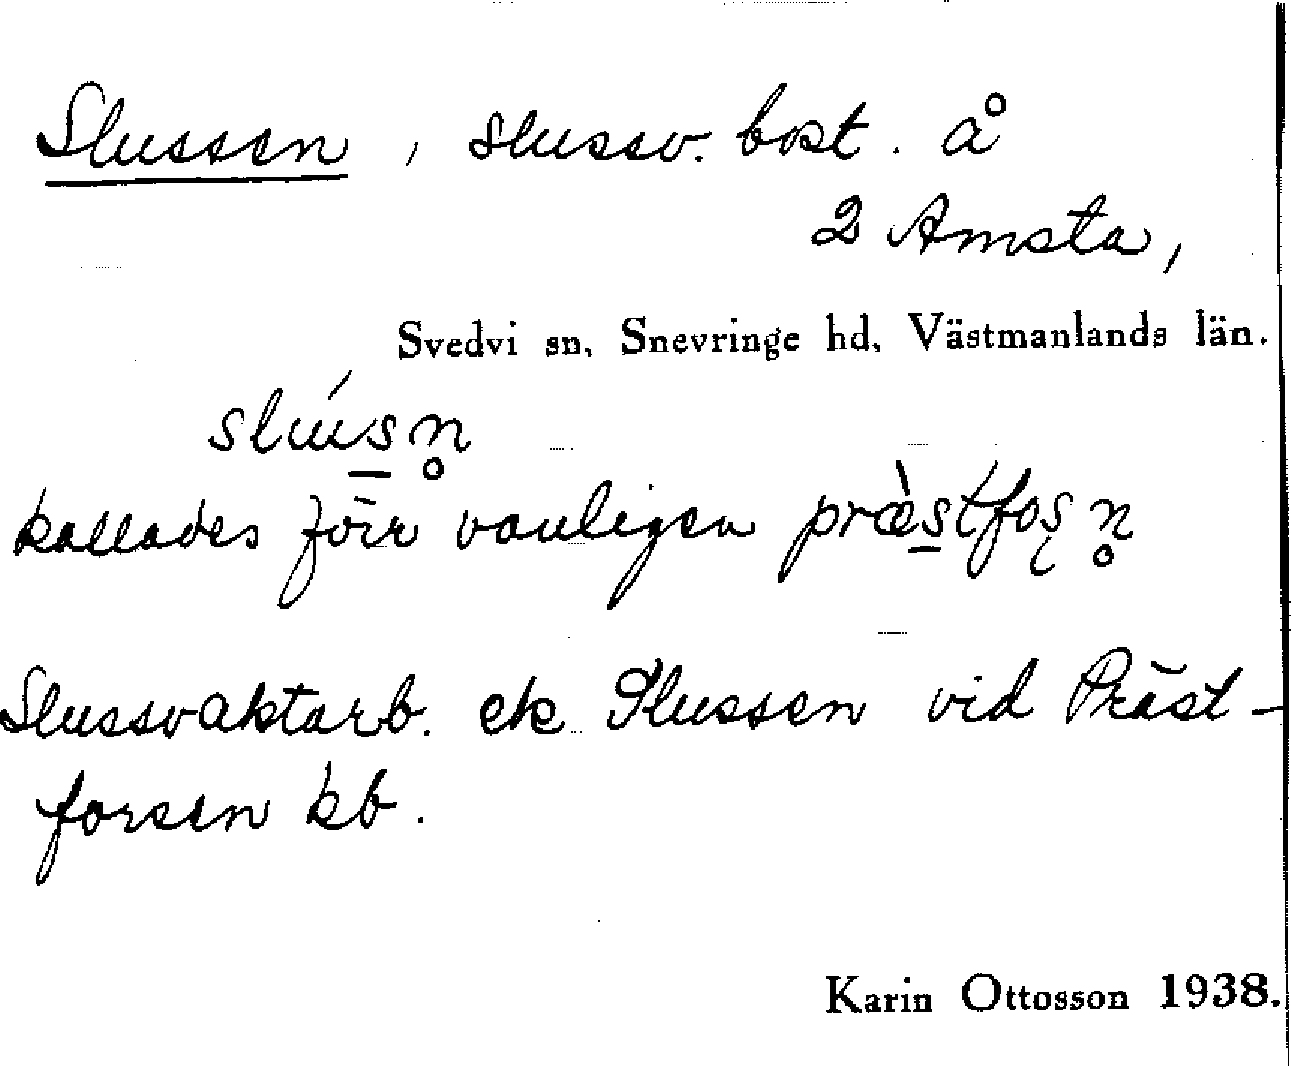 Slussen, slussv. bost. å
2 Amsta,
Svedvi sn, Snevringe hd, Västmanlands län.
slu̇́s̠n̥
kallades förr vanligen præ̀s̠tfoşn̥
Slussvaktarb. ek Slussen vid Präst-
forsen kb.
Karin Ottosson 1938.